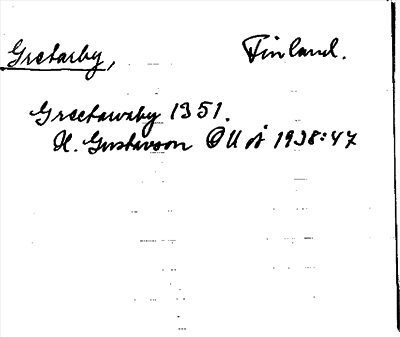 Gretarby, Finland.
Greetawaby 1351.
H. Gustavson OUÅ 1938:47